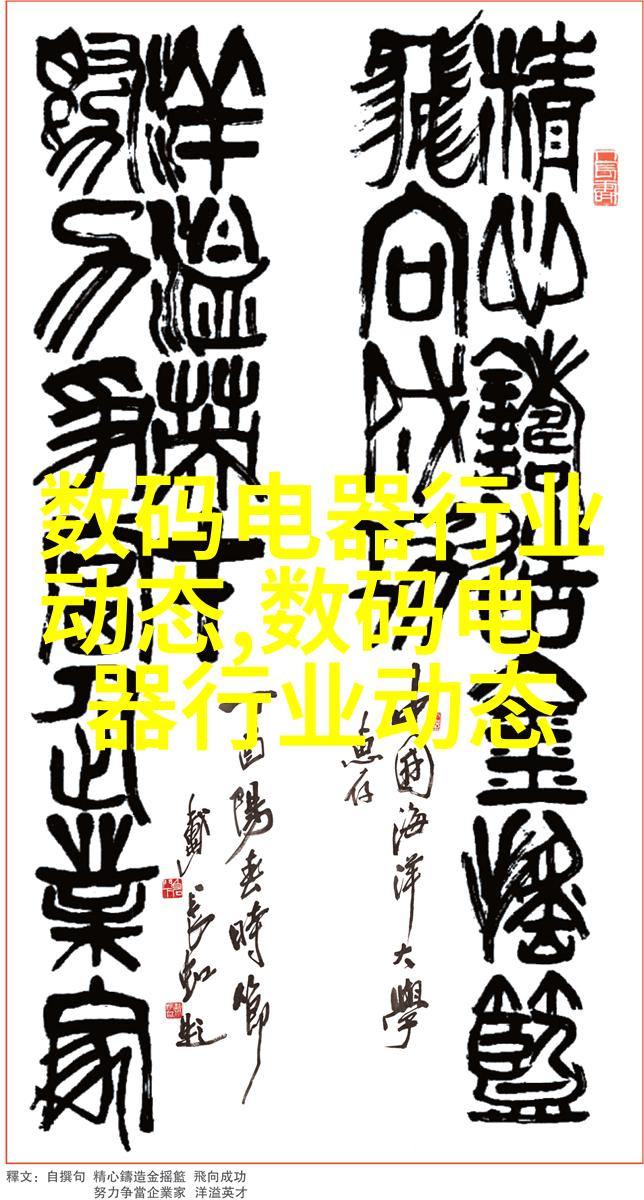 精心鑄造金摇籃
飛向成功
中國海洋大學
惠存
努力争當企業家
洋溢英才
丁酉陽春時節
戴長虹題
数码电器行业
动态,数码电
器行业动态
釋文：自撰句 精心鑄造金摇籃 飛向成功
努力争當企業家 洋溢英才